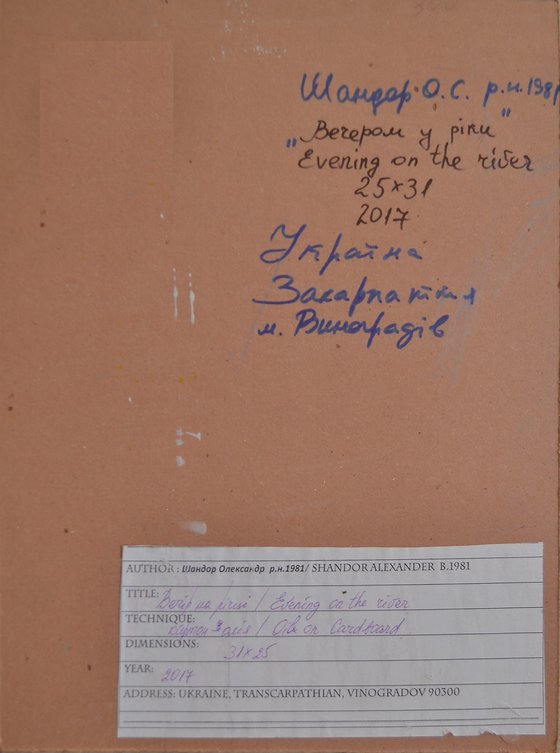 Шандор О.С. р.н.1981
„Вечером у ріки"
Evening on the river
25×31
2017
Україна
Закарпаття
м. Виноградів
AUTHOR : Шандор Олександр р.н.1981/ SHANDOR ALEXANDER B.1981
TITLE: Вечір на річці / Evening on the river
TECHNIQUE: картон олія / Oil on Cardboard
DIMENSIONS: 31×25
YEAR: 2017
ADDRESS: UKRAINE, TRANSCARPATHIAN, VINOGRADOV 90300